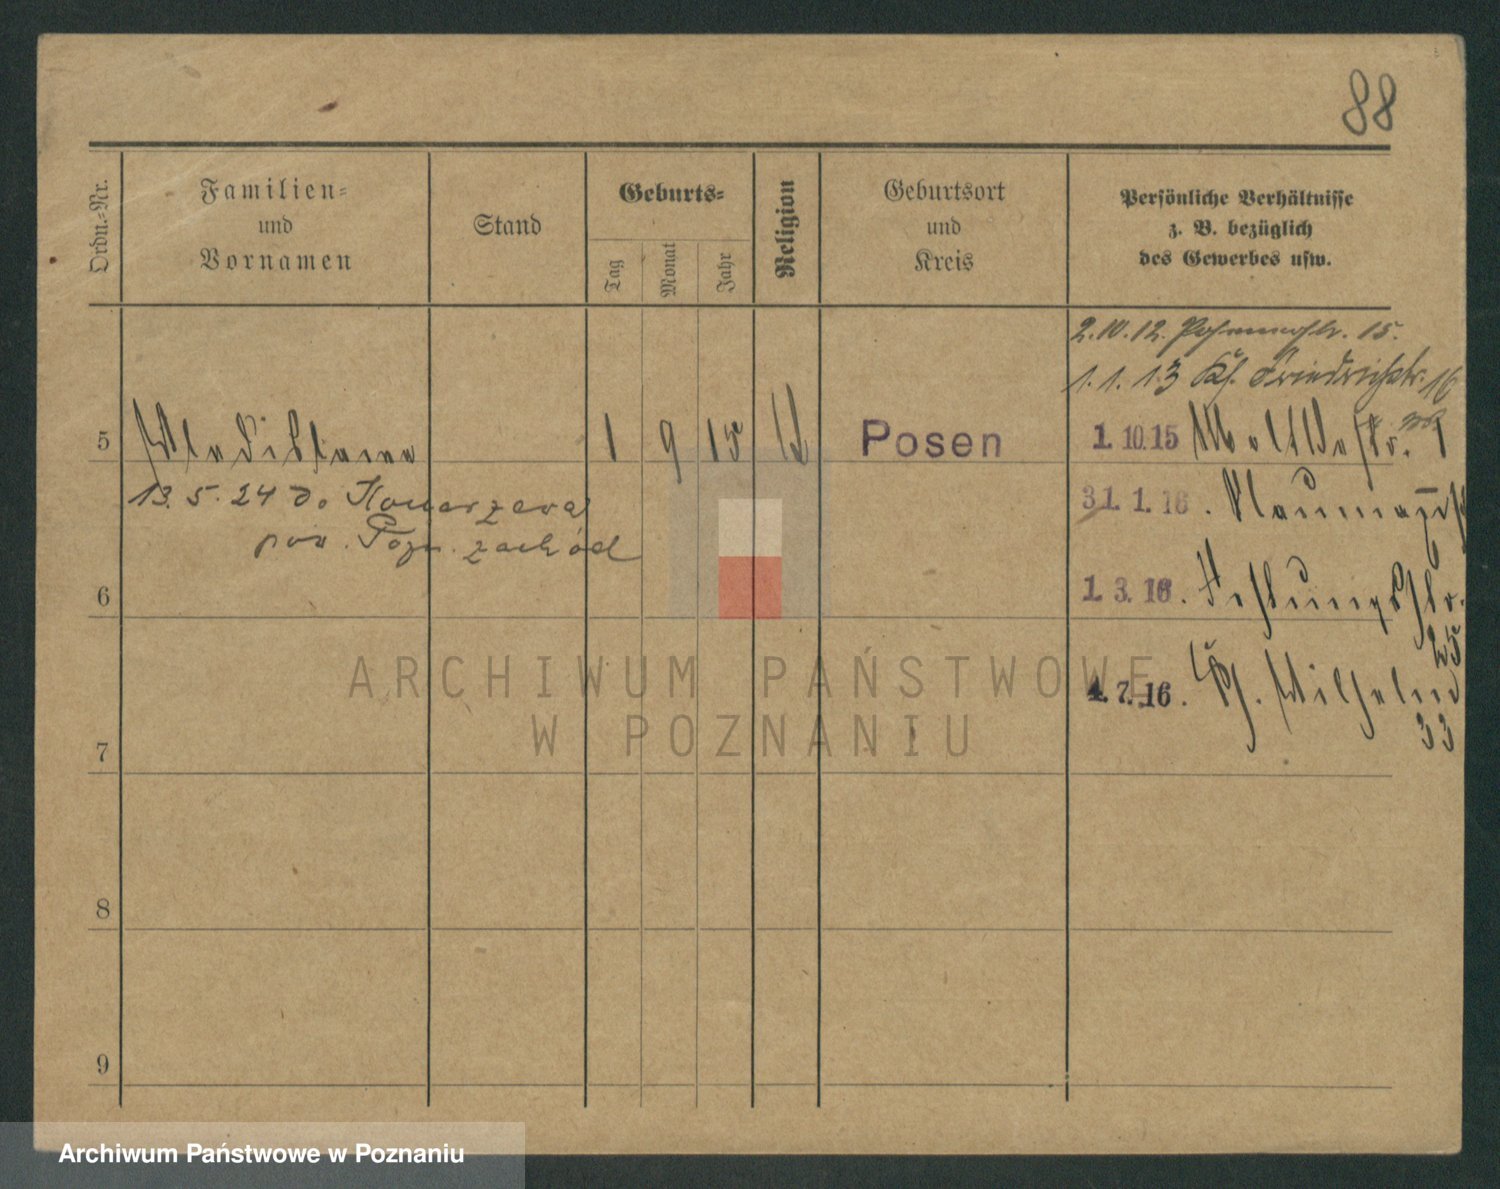 88
Ordn.-Nr.
Familien-
und
Vornamen
Stand
Geburts-
Tag
Monat
Jahr
Religion
Geburtsort
und
Kreis
Persönliche Verhältnisse
z. B. bezüglich
des Gewerbes usw.
2.10.12. 15.
1.1.13 Friedrichstr. 16
5 Wladislawa 1 9 15 Posen 1.10.15
13.5.24 do Konarzewa
pow. Pozn. zachód
31.1.16. Naumannstr.
6
1.3.16. Festungsstr.
25
4.7.16. Wilhelm
33
7
8
9
ARCHIWUM PAŃSTWOWE
W POZNANIU
Archiwum Państwowe w Poznaniu